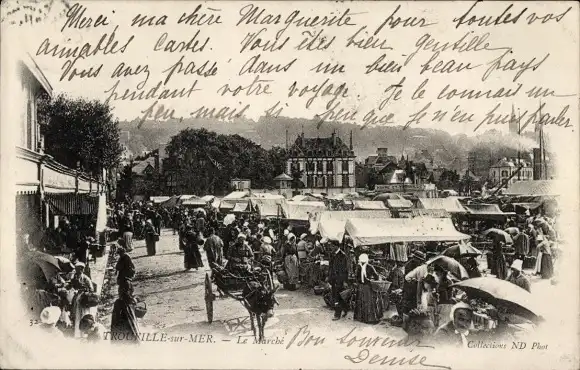 Merci, ma chère Marguerite pour toutes vos
aimables cartes. Vous êtes bien gentille
Vous avez passé dans un bien beau pays
pendant votre voyage. Je le connais un
peu mais si peu que je n'en puis parler.
32 TROUVILLE-sur-MER. — Le Marché
Bon Souvenir
Denise
Collections ND Phot